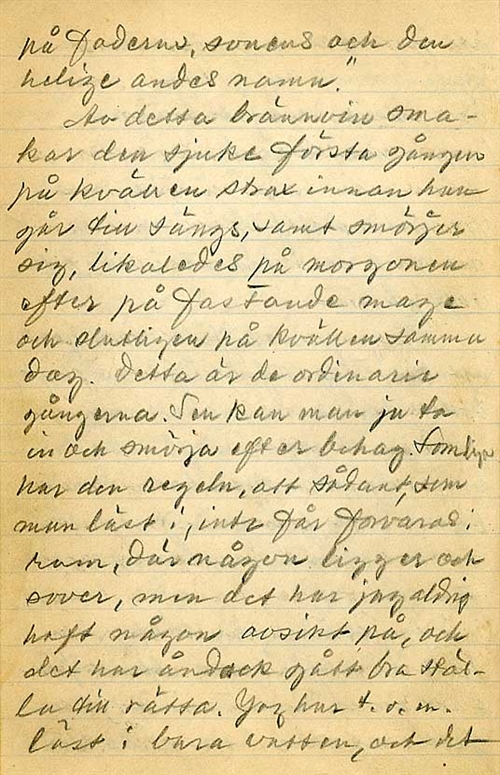 på Faderns, sonens och den
helige andes namn."
Av detta brännvin sma-
kar den sjuke första gången
på kvällen strax innan han
går till sängs, samt smörjer
sig, likaledes på morgonen
efter på fastande mage
och slutligen på kvällen samma
dag. Detta är de ordinarie
gångerna. Sen kan man ju ta
in och smörja efter behag. Somliga
har den regeln, att sådant, som
man läst i, inte får förvaras i
rum, där någon ligger och
sover, men det har jag aldrig
haft någon avsikt på, och
det har ändock gått bra stäl-
la till rätta. Jag har t. o. m.
läst i bara vatten, och det